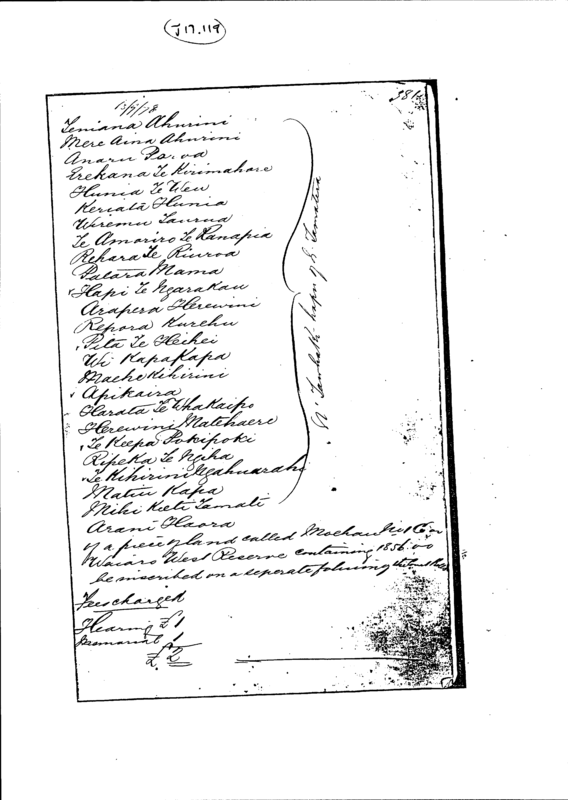 J17.119
381
13/9/78
Teniana Ahurini
Mere Aina Ahurini
Anaru
Erekana Te Kirimahore
Hunia Te Weu
Keriata Hunia
Wiremu Taurua
Te Amoriro Te Kanapia
Rehara Te Riuroa
Patara Mama
Hapi Te Ngarakau
Arapera Herewini
Repora Kurehu
Pita Te Heihei
Wi Kapakapa
Mache Kihirini
Apikaira
Harata Te Whakaipo
Herewini Matehaere
Te Keepa Pokipoki
Ripeka Te Ngiha
Te Kihirini Ngahuarahi
Matiu Kapa
Miki Keeti Tamati
Arani Haora
hapu of
of a piece of land called Moehau No 1
Waiaro West Reserve containing 1856.0.0
be inscribed on a seperate
Fees charged
Hearing £1
Memorial 1
£2